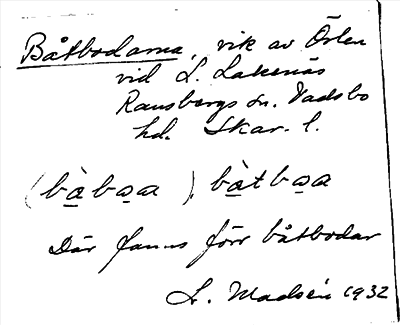 Båtbodarna, vik av Örlen
vid L. Lakenäs
Ransbergs sn. Vadsbo
hd. Skar. l.
(bàbo̲a̲a), bàtbo̲a̲a
Där fanns förr båtbodar
L. Madsén 1932